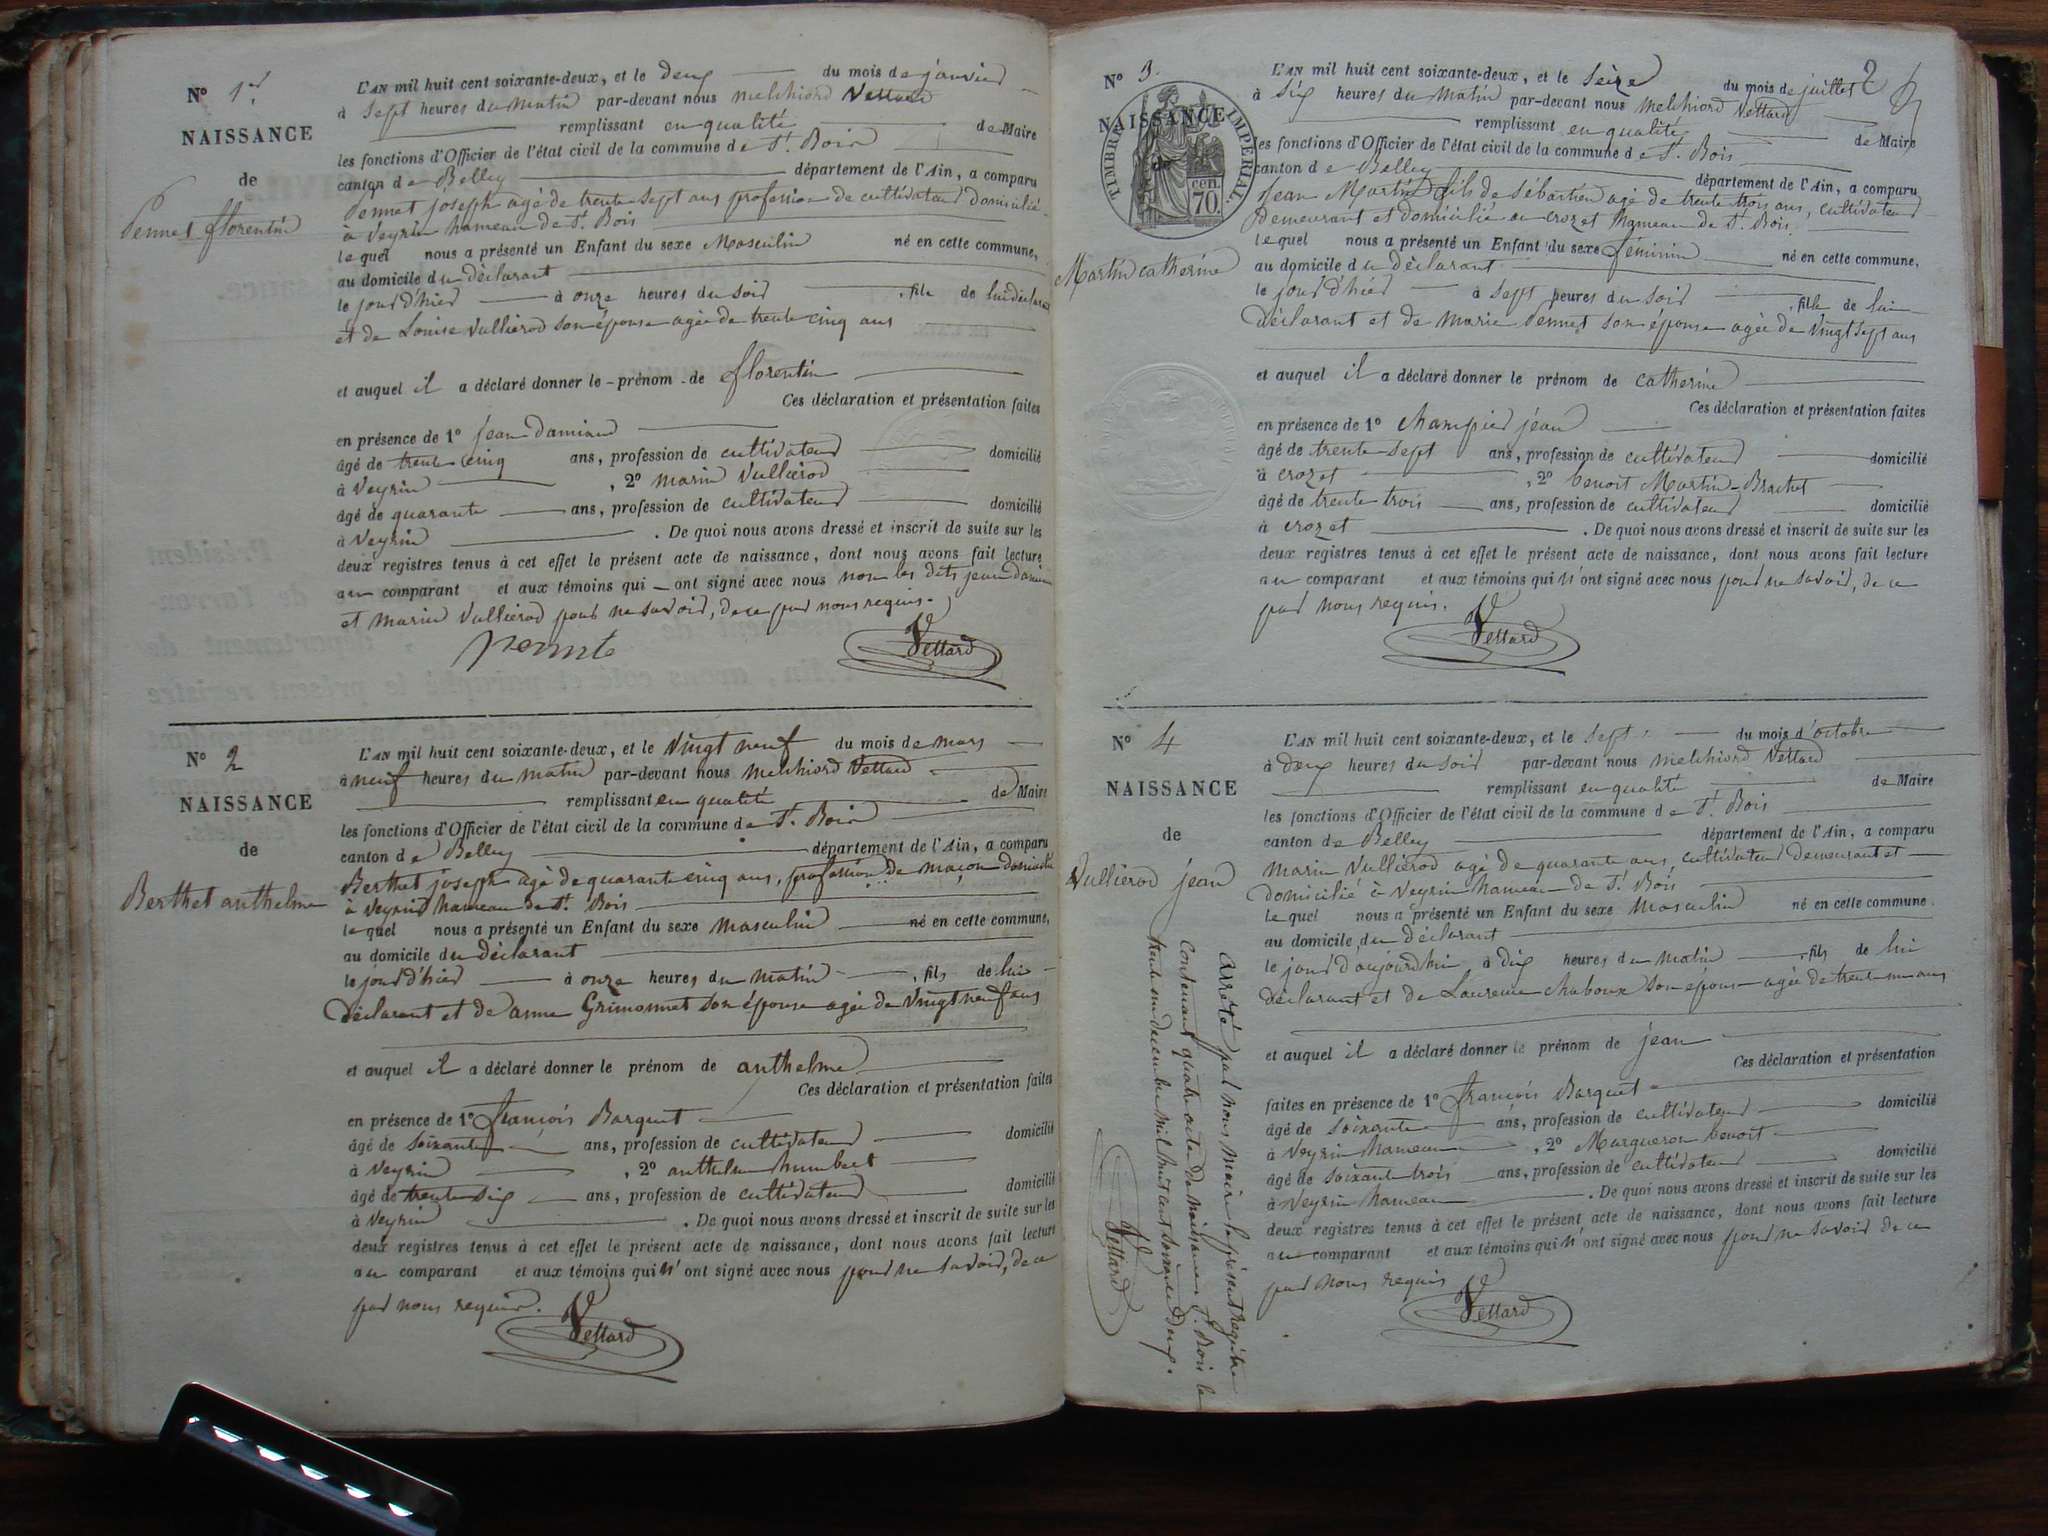 Nº 1er
NAISSANCE
de
Pennet florentin
L'AN mil huit cent soixante-deux, et le deux du mois de janvier
à sept heures du matin par-devant nous melchiord Vettard
remplissant en qualité de Maire
les fonctions d'Officier de l'état civil de la commune de St. Bois
canton de Belley département de l'Ain, a comparu
Pennet joseph agé de trente sept ans profession de cultivateur domicilié
à Veyrin hameau de St. Bois
lequel nous a présenté un Enfant du sexe Masculin né en cette commune,
au domicile du déclarant
le jour d'hier à onze heures du soir , fils de lui déclarant
et de Louise Vullierod son épouse agée de trente cinq ans
et auquel il a déclaré donner le prénom de florentin
Ces déclaration et présentation faites
en présence de 1º jean damians
âgé de trente cinq ans, profession de cultivateur domicilié
à Veyrin , 2º marin Vullierod
âgé de quarante ans, profession de cultivateur domicilié
à Veyrin . De quoi nous avons dressé et inscrit de suite sur les
deux registres tenus à cet effet le présent acte de naissance, dont nous avons fait lecture
au comparant et aux témoins qui ont signé avec nous non les dits jean damians
et marin Vullierod pour ne savoir, de ce par nous requis.
Vettard
Nº 2
NAISSANCE
de
Berthet anthelme
L'AN mil huit cent soixante-deux, et le vingt neuf du mois de mars
à neuf heures du matin par-devant nous melchiord Vettard
remplissant en qualité de Maire
les fonctions d'Officier de l'état civil de la commune de St. Bois
canton de Belley département de l'Ain, a comparu
Berthet joseph agé de quarante cinq ans, profession de maçon domicilié
à Veyrin hameau de St. Bois
lequel nous a présenté un Enfant du sexe masculin né en cette commune,
au domicile du déclarant
le jour d'hier à onze heures du matin , fils de lui
déclarant et de anne Grimonnet son épouse agée de vingt neuf ans
et auquel il a déclaré donner le prénom de anthelme
Ces déclaration et présentation faites
en présence de 1º françois Barquet
âgé de soixante ans, profession de cultivateur domicilié
à Veyrin , 2º anthelme humbert
âgé de trente six ans, profession de cultivateur domicilié
à Veyrin . De quoi nous avons dressé et inscrit de suite sur les
deux registres tenus à cet effet le présent acte de naissance, dont nous avons fait lecture
au comparant et aux témoins qui n'ont signé avec nous pour ne savoir, de ce
par nous requis.
Vettard
2
Nº 3.
NAISSANCE
de
TIMBRE IMPÉRIAL.
cen. 70.
Martin catherine
L'AN mil huit cent soixante-deux, et le seize du mois de juillet
à six heures du matin par-devant nous melchiord Vettard
remplissant en qualité de Maire
les fonctions d'Officier de l'état civil de la commune de St. Bois
canton de Belley département de l'Ain, a comparu
Jean Martin fils de sébastien agé de trente trois ans, cultivateur
demeurant et domicilié à crozet hameau de St. Bois
lequel nous a présenté un Enfant du sexe féminin né en cette commune,
au domicile du déclarant
le jour d'hier à sept heures du soir , fille de lui
déclarant et de marie Pennet son épouse agée de vingt sept ans
et auquel il a déclaré donner le prénom de catherine
Ces déclaration et présentation faites
en présence de 1º champied jean
âgé de trente-sept ans, profession de cultivateur domicilié
à crozet , 2º benoit Martin-Brachet
âgé de trente trois ans, profession de cultivateur domicilié
à crozet . De quoi nous avons dressé et inscrit de suite sur les
deux registres tenus à cet effet le présent acte de naissance, dont nous avons fait lecture
au comparant et aux témoins qui n'ont signé avec nous pour ne savoir, de ce
par nous requis.
Vettard
Nº 4
NAISSANCE
de
Vullierod jean
L'AN mil huit cent soixante-deux, et le sept du mois d'octobre
à deux heures du soir par-devant nous melchiord Vettard
remplissant en qualité de Maire
les fonctions d'Officier de l'état civil de la commune de St. Bois
canton de Belley département de l'Ain, a comparu
marin Vullierod agé de quarante ans, cultivateur demeurant et
domicilié à Veyrin hameau de St. Bois
lequel nous a présenté un Enfant du sexe masculin né en cette commune.
au domicile du déclarant
le jour d'aujourd'hui à dix heures du matin , fils de lui
déclarant et de Laurence chaboux son épouse agée de trente un ans
et auquel il a déclaré donner le prénom de jean
Ces déclaration et présentation
faites en présence de 1º françois Barquet
âgé de soixante ans, profession de cultivateur domicilié
à Veyrin hameau , 2º Margueron benoit
âgé de soixante trois ans, profession de cultivateur domicilié
à Veyrin hameau . De quoi nous avons dressé et inscrit de suite sur les
deux registres tenus à cet effet le présent acte de naissance, dont nous avons fait lecture
au comparant et aux témoins qui n'ont signé avec nous pour ne savoir de ce
par nous requis
Vettard
arrêté par nous maire le présent registre
contenant quatre acte de naissance St. Bois le
trente un decembre mil huit cent soixante deux.
Vettard